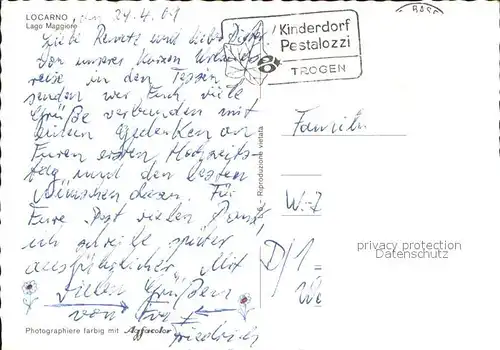 LOCARNO den 29.4.61
Lago Maggiore
Liebe Renate und lieber Dieter!
Von unserer kurzen Urlaubs-
reise in den Tessin
senden wir Euch viele
Grüße verbunden mit
lieben Gedenken an
Euren ersten Hochzeits-
tag und den besten
Wünschen dazu. Für
Eure Post vielen Dank,
ich schreibe später
ausführlicher. Mit
vielen Grüßen
von
Friedrich
Photographiere farbig mit Agfacolor
Riproduzione vietata
Kinderdorf
Pestalozzi
TROGEN
BASE
Familie
D/1
privacy protection
Datenschutz